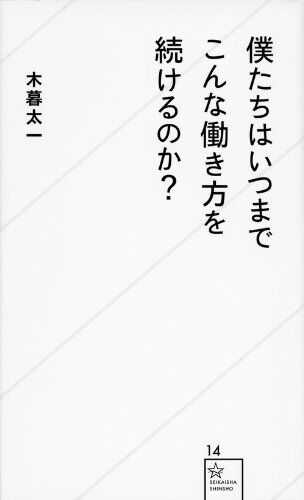 僕たちはいつまで
こんな働き方を
続けるのか?
木暮太一
14
SEIKAISHA
SHINSHO